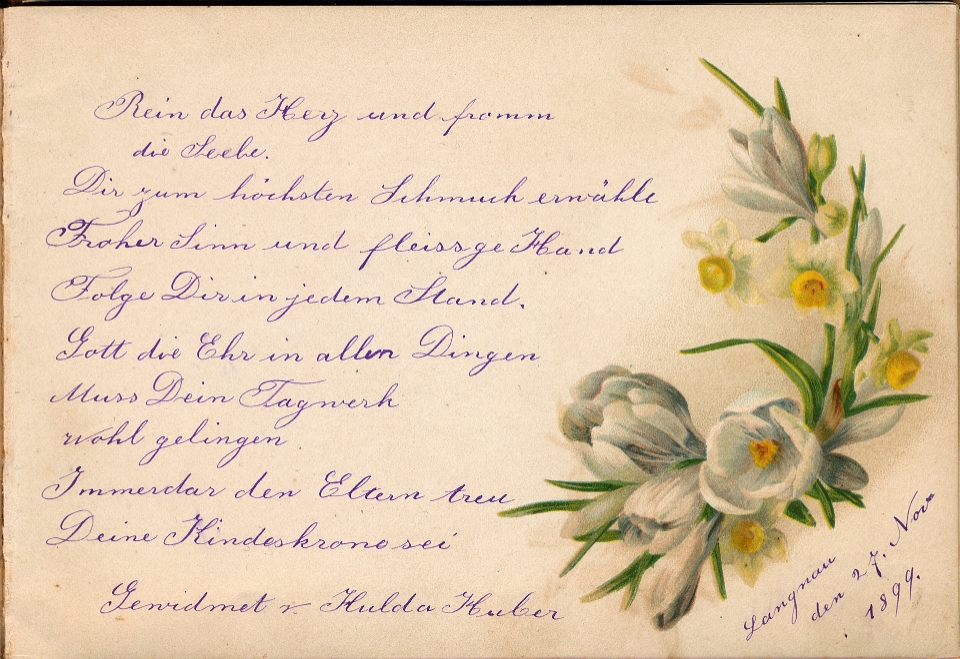 Rein das Herz und fromm
die Seele.
Dir zum höchsten Schmuck erwähle
Froher Sinn und fleissge Hand
Folge Dir in jedem Stand.
Gott die Ehr in allen Dingen
Muss Dein Tagwerk
wohl gelingen
Immerdar den Eltern treu
Deine Kindeskrone sei
Gewidmet v Hulda Huber
Langnau
den 27. Nov.
1899.